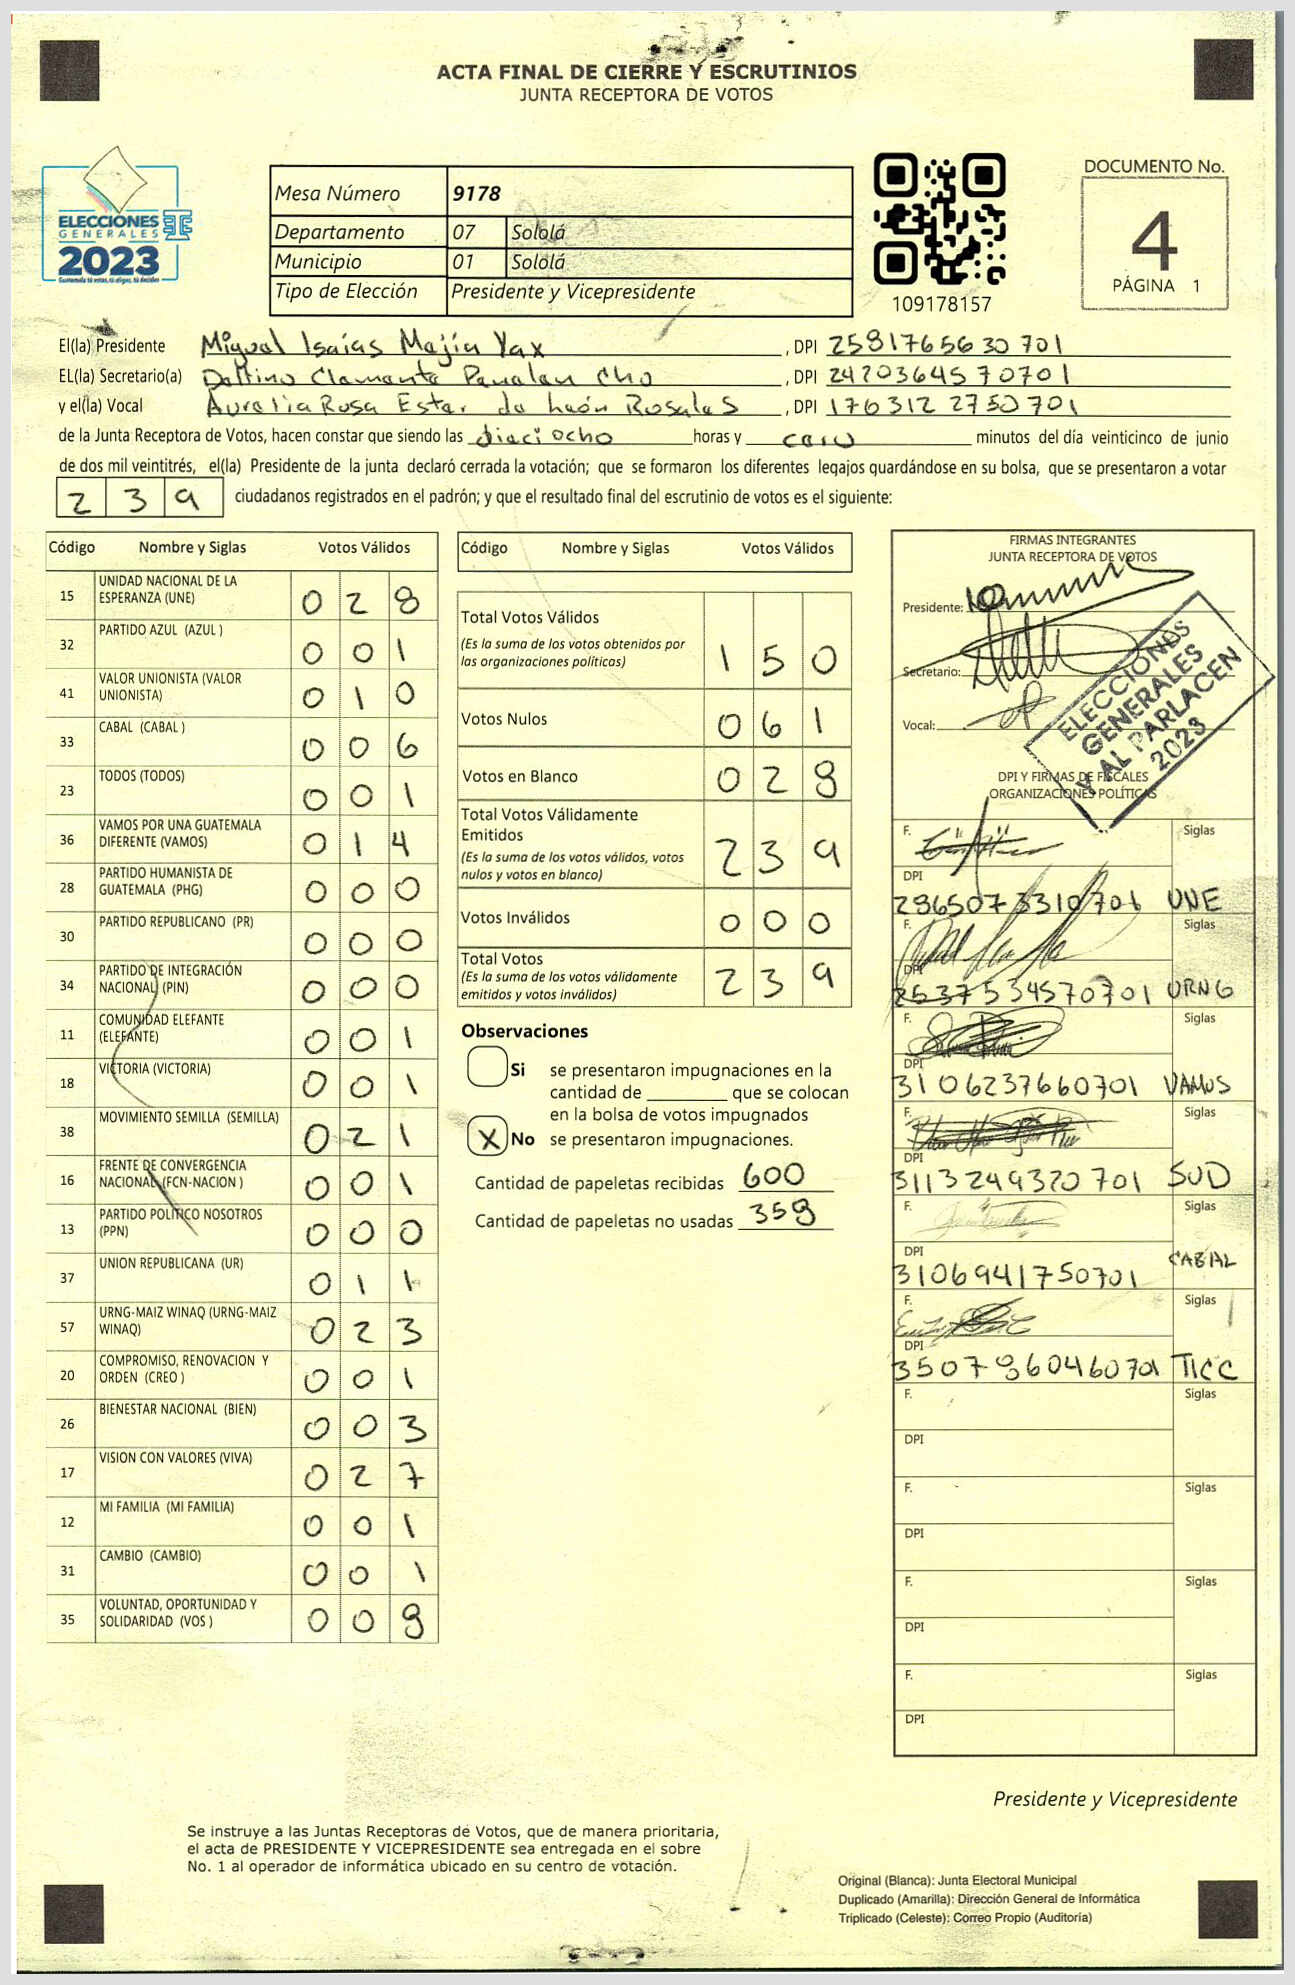 ACTA FINAL DE CIERRE Y ESCRUTINIOS
JUNTA RECEPTORA DE VOTOS
ELECCIONES
GENERALES
2023
Mesa Número 9178
Departamento 07 Sololá
Municipio 01 Sololá
Tipo de Elección Presidente y Vicepresidente
109178157
DOCUMENTO No.
4
PÁGINA 1
El(la) Presidente Miguel Isaías Mejía Yax, DPI 2581765630701
EL(la) Secretario(a) Delfino Clemente Cho, DPI 2420364570701
y el(la) Vocal Aurelia Rosa Ester de León Rosales, DPI 1763122750701
de la Junta Receptora de Votos, hacen constar que siendo las dieciocho horas y cero minutos del día veinticinco de junio
de dos mil veintitrés, el(la) Presidente de la junta declaró cerrada la votación; que se formaron los diferentes legajos guardándose en su bolsa, que se presentaron a votar
239 ciudadanos registrados en el padrón; y que el resultado final del escrutinio de votos es el siguiente:
Código Nombre y Siglas Votos Válidos
15 UNIDAD NACIONAL DE LA ESPERANZA (UNE) 028
32 PARTIDO AZUL (AZUL ) 001
41 VALOR UNIONISTA (VALOR UNIONISTA) 010
33 CABAL (CABAL ) 006
23 TODOS (TODOS) 001
36 VAMOS POR UNA GUATEMALA DIFERENTE (VAMOS) 014
28 PARTIDO HUMANISTA DE GUATEMALA (PHG) 000
30 PARTIDO REPUBLICANO (PR) 000
34 PARTIDO DE INTEGRACIÓN NACIONAL (PIN) 000
11 COMUNIDAD ELEFANTE (ELEFANTE) 001
18 VICTORIA (VICTORIA) 001
38 MOVIMIENTO SEMILLA (SEMILLA) 021
16 FRENTE DE CONVERGENCIA NACIONAL (FCN-NACION ) 001
13 PARTIDO POLÍTICO NOSOTROS (PPN) 000
37 UNION REPUBLICANA (UR) 011
57 URNG-MAIZ WINAQ (URNG-MAIZ WINAQ) 023
20 COMPROMISO, RENOVACION Y ORDEN (CREO ) 001
26 BIENESTAR NACIONAL (BIEN) 003
17 VISION CON VALORES (VIVA) 027
12 MI FAMILIA (MI FAMILIA) 001
31 CAMBIO (CAMBIO) 001
35 VOLUNTAD, OPORTUNIDAD Y SOLIDARIDAD (VOS )
Código Nombre y Siglas Votos Válidos
Total Votos Válidos 150
(Es la suma de los votos obtenidos por
las organizaciones políticas)
Votos Nulos 061
Votos en Blanco 028
Total Votos Válidamente
Emitidos 239
(Es la suma de los votos válidos, votos
nulos y votos en blanco)
Votos Inválidos 000
Total Votos 239
(Es la suma de los votos válidamente
emitidos y votos inválidos)
Observaciones
Si se presentaron impugnaciones en la
cantidad de ________ que se colocan
en la bolsa de votos impugnados
X No se presentaron impugnaciones.
Cantidad de papeletas recibidas 600
Cantidad de papeletas no usadas
FIRMAS INTEGRANTES
JUNTA RECEPTORA DE VOTOS
Presidente:
Secretario:
Vocal:
ELECCIONES
GENERALES
Y AL PARLACEN
2023
DPI Y FIRMAS DE FISCALES
ORGANIZACIONES POLÍTICAS
F. Siglas
DPI
2865073310701 UNE
F. Siglas
DPI
2537534570701 URNG
F. Siglas
DPI
3106237660701 VAMOS
F. Siglas
DPI
3113249320701 SUD
F. Siglas
DPI
3106941750701 CABAL
F. Siglas
DPI
3507960460701
F. Siglas
DPI
F. Siglas
DPI
F. Siglas
DPI
F. Siglas
DPI
Presidente y Vicepresidente
Se instruye a las Juntas Receptoras de Votos, que de manera prioritaria,
el acta de PRESIDENTE Y VICEPRESIDENTE sea entregada en el sobre
No. 1 al operador de informática ubicado en su centro de votación.
Original (Blanca): Junta Electoral Municipal
Duplicado (Amarilla): Dirección General de Informática
Triplicado (Celeste): Correo Propio (Auditoría)